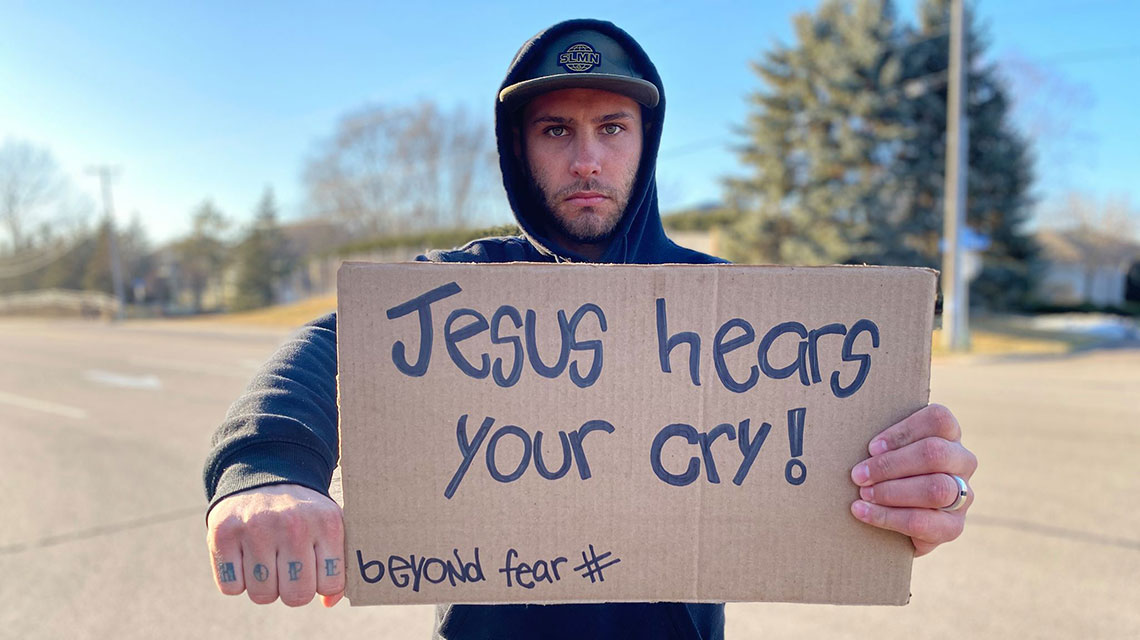 SLMN
Jesus hears
your cry!
HOPE
beyond fear #